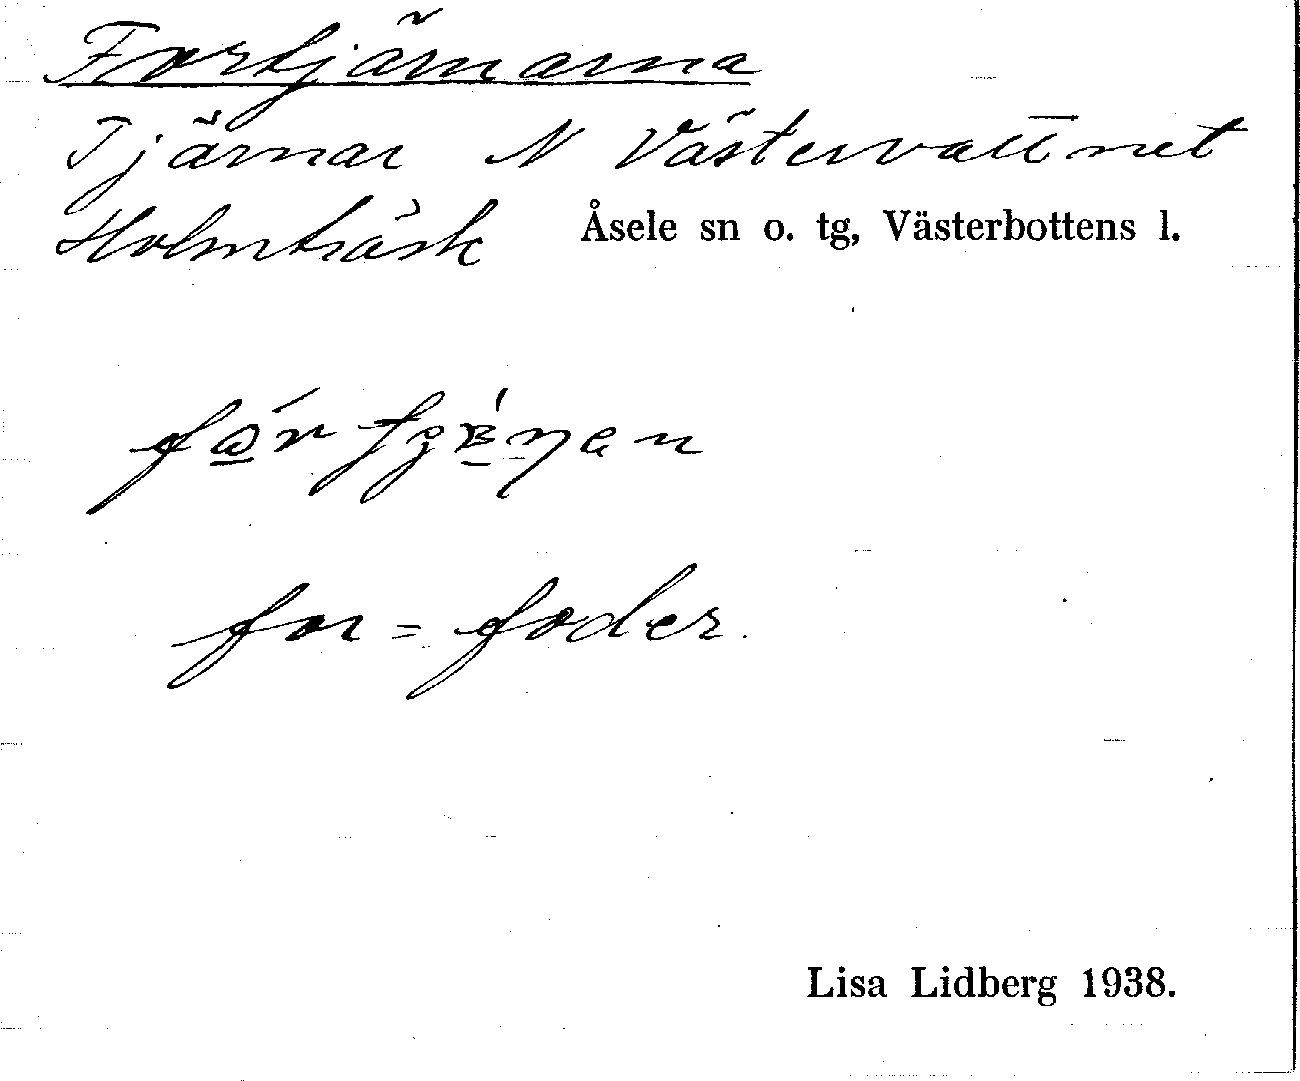 Fortjärnarna
Tjärnar N Västervattnet
Holmträsk Åsele sn o. tg, Västerbottens l.
for = foder.
Lisa Lidberg 1938.